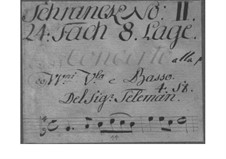 Schranck No: II.
24. Fach 8. Lage.
Concerto alla
Vni Vla e Basso.
4. St.
Del Sig: Teleman.